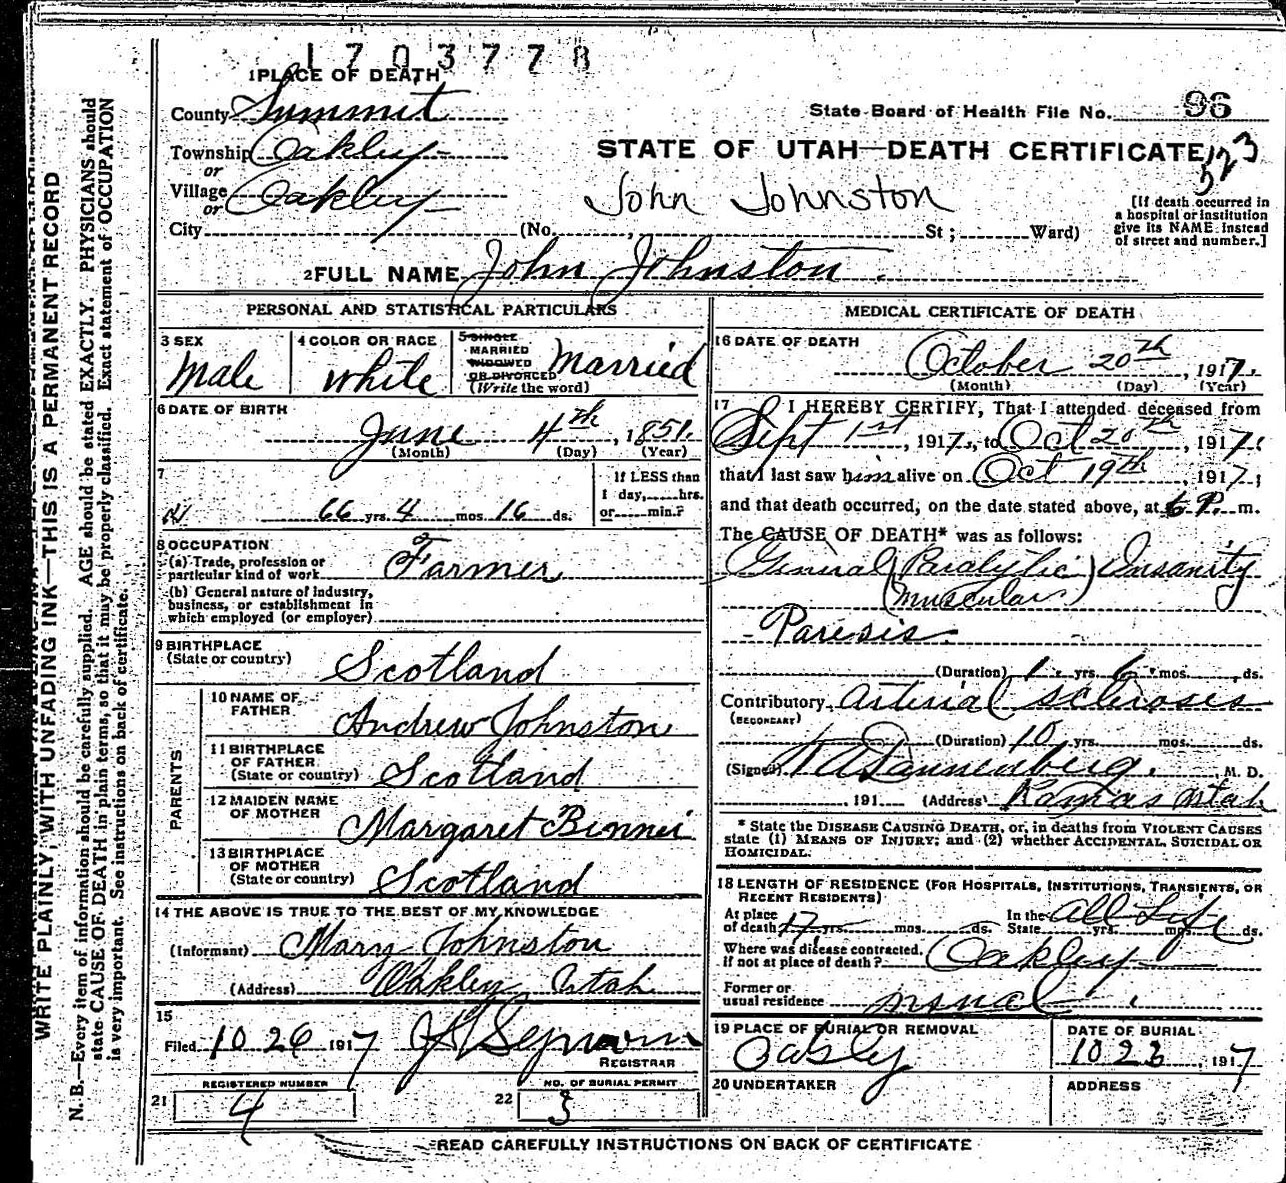 1703778
1 PLACE OF DEATH
County Summit
State Board of Health File No. 96
Township Oakley
STATE OF UTAH—DEATH CERTIFICATE
523
or
Village Oakley
or
John Johnston
[If death occurred in
a hospital or institution
give its NAME instead
of street and number.]
City (No. , St ; Ward)
2 FULL NAME John Johnston
PERSONAL AND STATISTICAL PARTICULARS
3 SEX
Male
4 COLOR OR RACE
White
5 SINGLE
MARRIED
WIDOWED
OR DIVORCED
(Write the word)
Married
6 DATE OF BIRTH
June 4th, 1851.
(Month) (Day) (Year)
7
66 yrs. 4 mos. 16 ds.
If LESS than
1 day, hrs.
or min.?
8 OCCUPATION
(a) Trade, profession or
particular kind of work Farmer
(b) General nature of industry,
business, or establishment in
which employed (or employer)
9 BIRTHPLACE
(State or country) Scotland
PARENTS
10 NAME OF
FATHER Andrew Johnston
11 BIRTHPLACE
OF FATHER
(State or country) Scotland
12 MAIDEN NAME
OF MOTHER Margaret Binnei
13 BIRTHPLACE
OF MOTHER
(State or country) Scotland
14 THE ABOVE IS TRUE TO THE BEST OF MY KNOWLEDGE
(Informant) Mary Johnston
(Address) Oakley Utah
15
Filed 10 26 1917
REGISTRAR
REGISTERED NUMBER
21 4
NO. OF BURIAL PERMIT
22 3
MEDICAL CERTIFICATE OF DEATH
16 DATE OF DEATH
October 20th, 1917.
(Month) (Day) (Year)
17 I HEREBY CERTIFY, That I attended deceased from
Sept 1st, 1917, to Oct 20th 1917
that I last saw him alive on Oct 19th, 1917;
and that death occurred, on the date stated above, at 6 P. m.
The CAUSE OF DEATH* was as follows:
General (Paralytic) Insanity
(muscular)
Paresis
(Duration) 1 yrs. 6 mos. ds.
Contributory Arterial Scleroses
(SECONDARY)
(Duration) 10 yrs. mos. ds.
(Signed) Dannenberg. , M. D.
, 191 (Address) Kamas Utah
* State the DISEASE CAUSING DEATH, or, in deaths from VIOLENT CAUSES
state (1) MEANS OF INJURY; and (2) whether ACCIDENTAL, SUICIDAL OR
HOMICIDAL.
18 LENGTH OF RESIDENCE (FOR HOSPITALS, INSTITUTIONS, TRANSIENTS, OR
RECENT RESIDENTS)
At place
of death 17 yrs. mos. ds. In the State All Life yrs. mos. ds.
Where was disease contracted,
if not at place of death? Oakley
Former or
usual residence
19 PLACE OF BURIAL OR REMOVAL
DATE OF BURIAL
10 23, 1917
20 UNDERTAKER
ADDRESS
READ CAREFULLY INSTRUCTIONS ON BACK OF CERTIFICATE
WRITE PLAINLY, WITH UNFADING INK—THIS IS A PERMANENT RECORD
N. B.—Every item of information should be carefully supplied. AGE should be stated EXACTLY. PHYSICIANS should
state CAUSE OF DEATH in plain terms, so that it may be properly classified. Exact statement of OCCUPATION
is very important. See instructions on back of certificate.